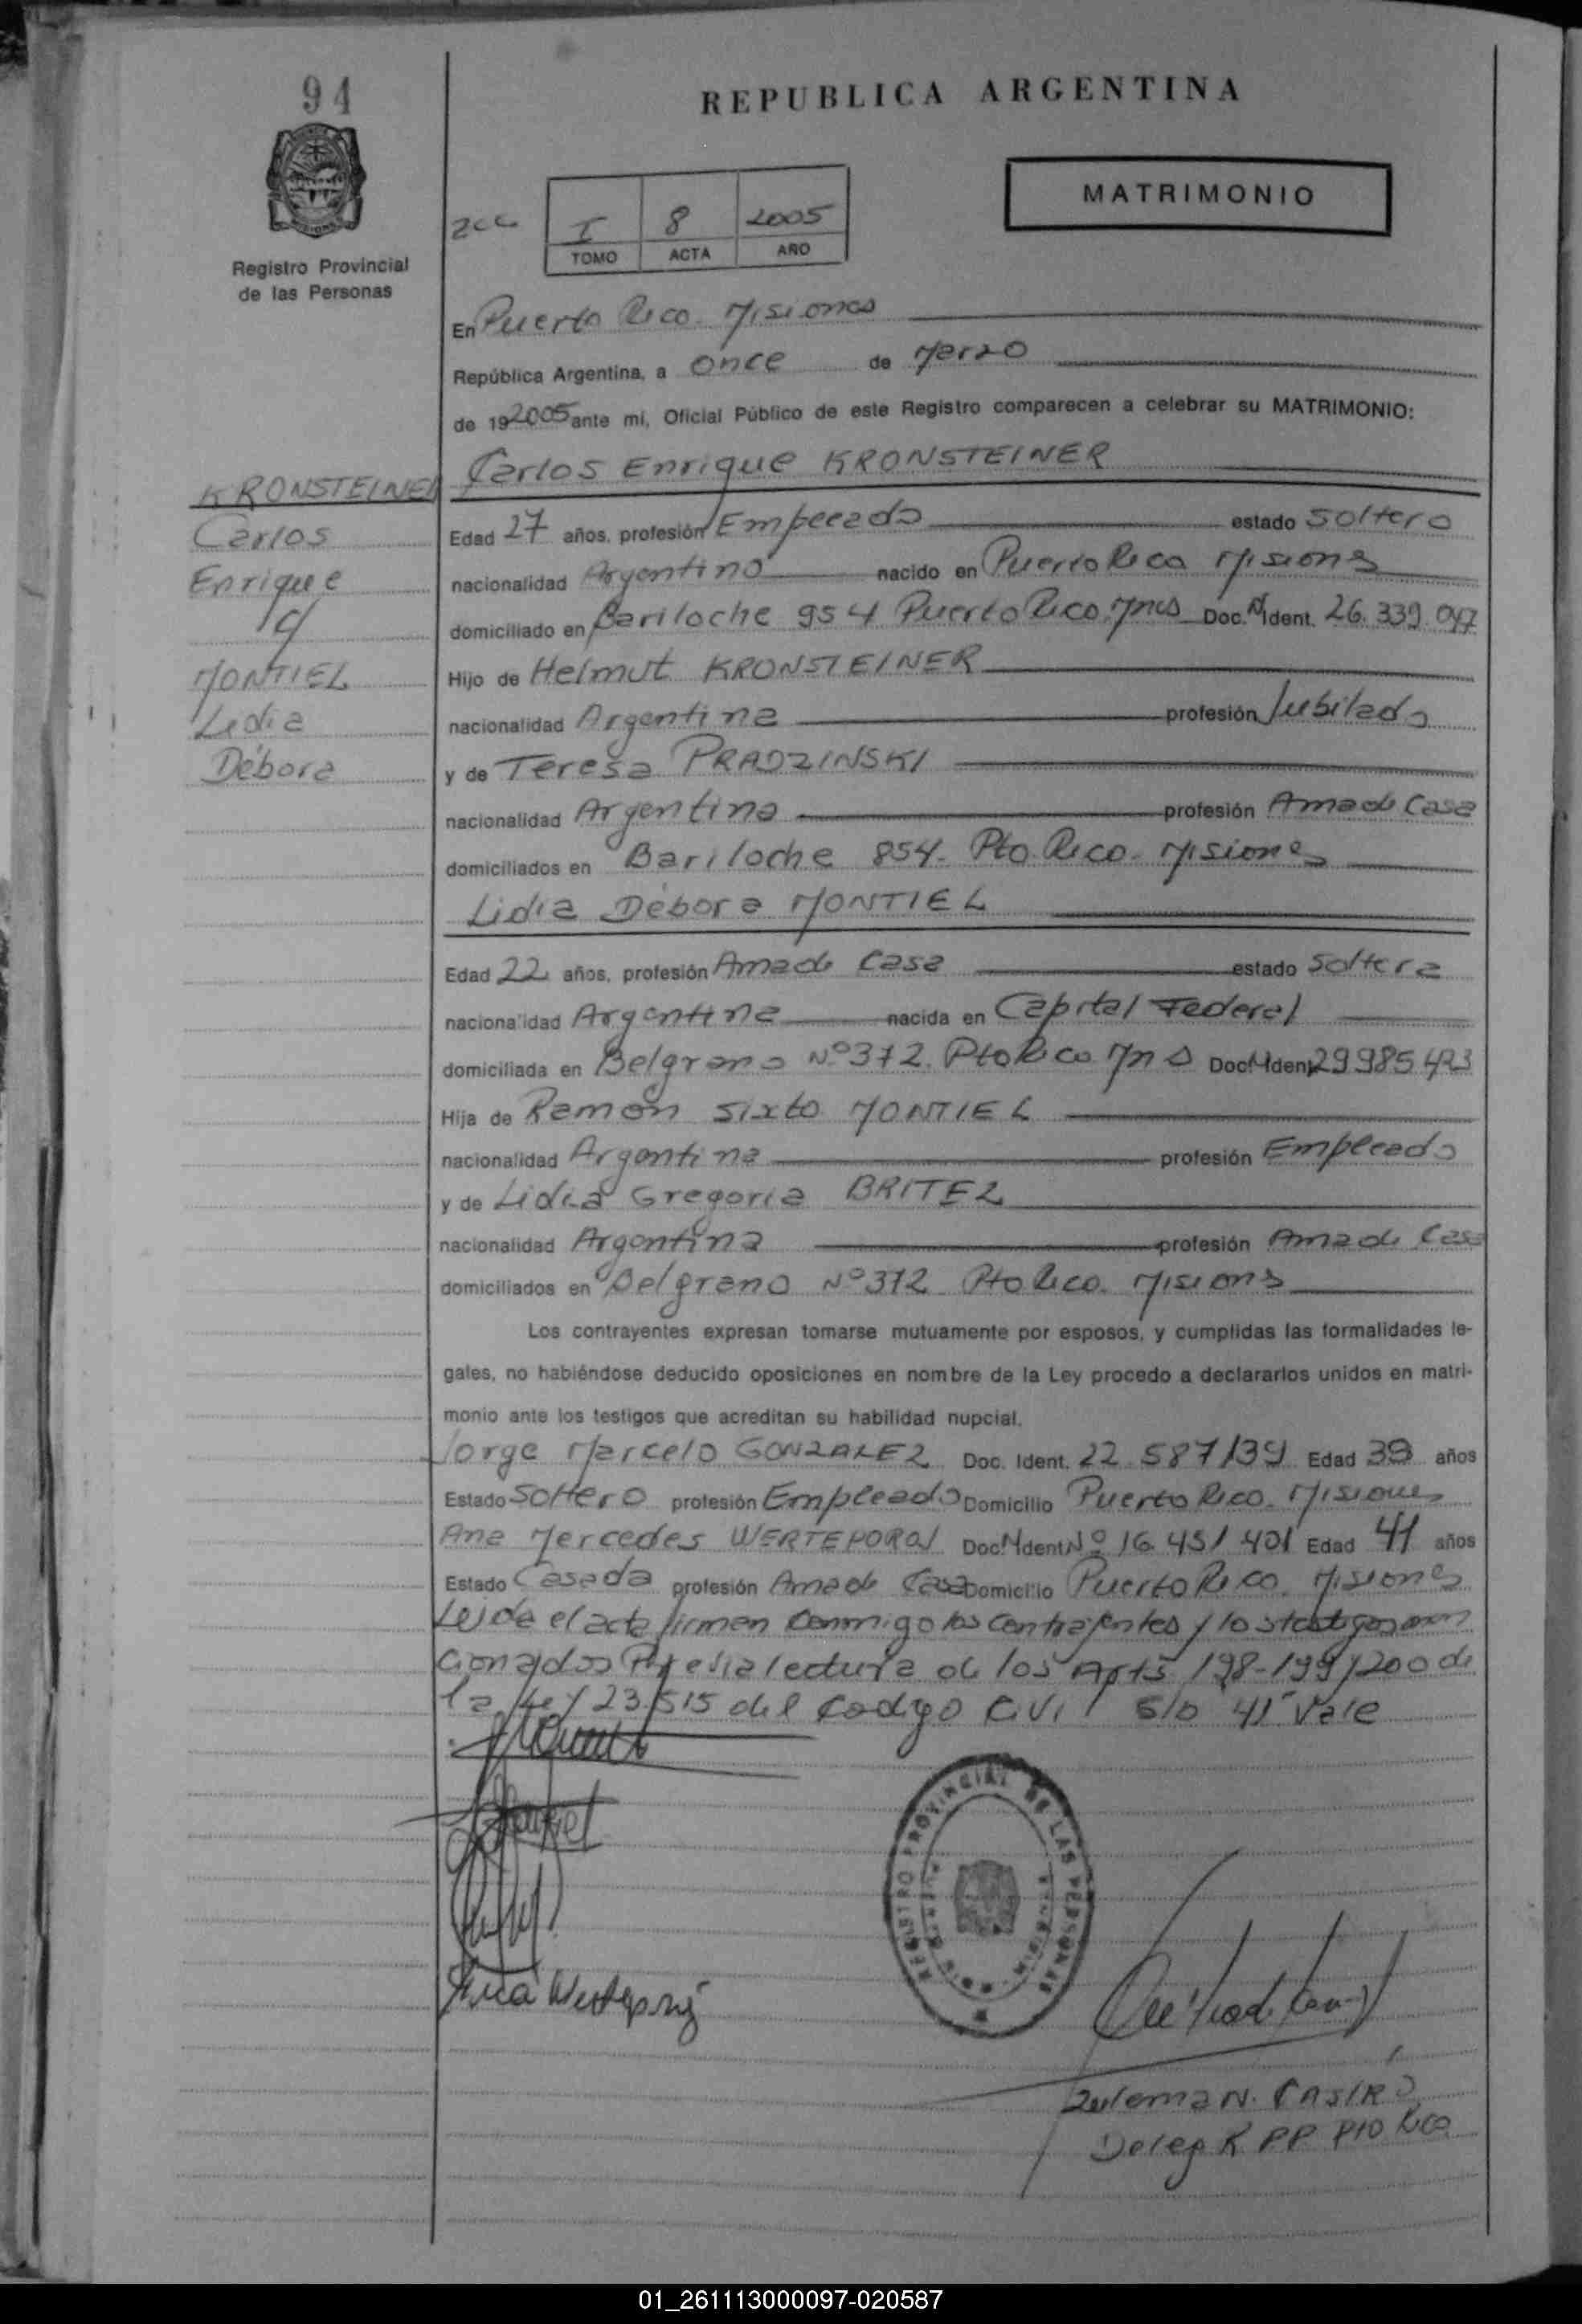 94
REPUBLICA ARGENTINA
MATRIMONIO
I 8 2005
TOMO ACTA AÑO
Registro Provincial
de las Personas
En Puerto Rico. Misiones
República Argentina, a once de Marzo
de 192005 ante mi, Oficial Público de este Registro comparecen a celebrar su MATRIMONIO:
Carlos Enrique KRONSTEINER
KRONSTEINER
Carlos
Enrique
c/
MONTIEL
Lidia
Débora
Edad 27 años, profesión Empleado estado Soltero
nacionalidad Argentino nacido en Puerto Rico Misiones
domiciliado en Bariloche 954 Puerto Rico. Mnes Doc. N. Ident. 26.339.047
Hijo de Helmut KRONSTEINER
nacionalidad Argentina profesión Jubilado
y de Teresa PRADZINSKI
nacionalidad Argentina profesión Ama de Casa
domiciliados en Bariloche 854. Pto Rico. Misiones
Lidia Débora MONTIEL
Edad 22 años, profesión Ama de Casa estado Soltera
nacionalidad Argentina nacida en Capital Federal
domiciliada en Belgrano Nº 372. Pto Rico Mns Doc. N. Ident. 29985423
Hija de Ramón Sixto MONTIEL
nacionalidad Argentina profesión Empleado
y de Lidia Gregoria BRITEZ
nacionalidad Argentina profesión Ama de Casa
domiciliados en Belgrano Nº 372 Pto Rico. Misions
Los contrayentes expresan tomarse mutuamente por esposos, y cumplidas las formalidades le-
gales, no habiéndose deducido oposiciones en nombre de la Ley procedo a declararlos unidos en matri-
monio ante los testigos que acreditan su habilidad nupcial.
Jorge Marcelo GONZALEZ Doc. Ident. 22.587139 Edad 38 años
Estado Soltero profesión Empleado Domicilio Puerto Rico. Misiones
Ana Mercedes Doc. N. Ident. Nº 16.451 401 Edad 41 años
Estado Casada profesión Ama de Casa Domicilio Puerto Rico. Misiones
Leida el acta firman conmigo los contrayentes y los testigos men
cionados Previa lectura de los Arts 198-199 y 200 de
la Ley 23.515 del Codigo Civil S/b "41" Vale
REGISTRO PROVINCIAL DE LAS PERSONAS
Zulema N. CASTRO
Deleg R PP Pto Rico
01_261113000097-020587